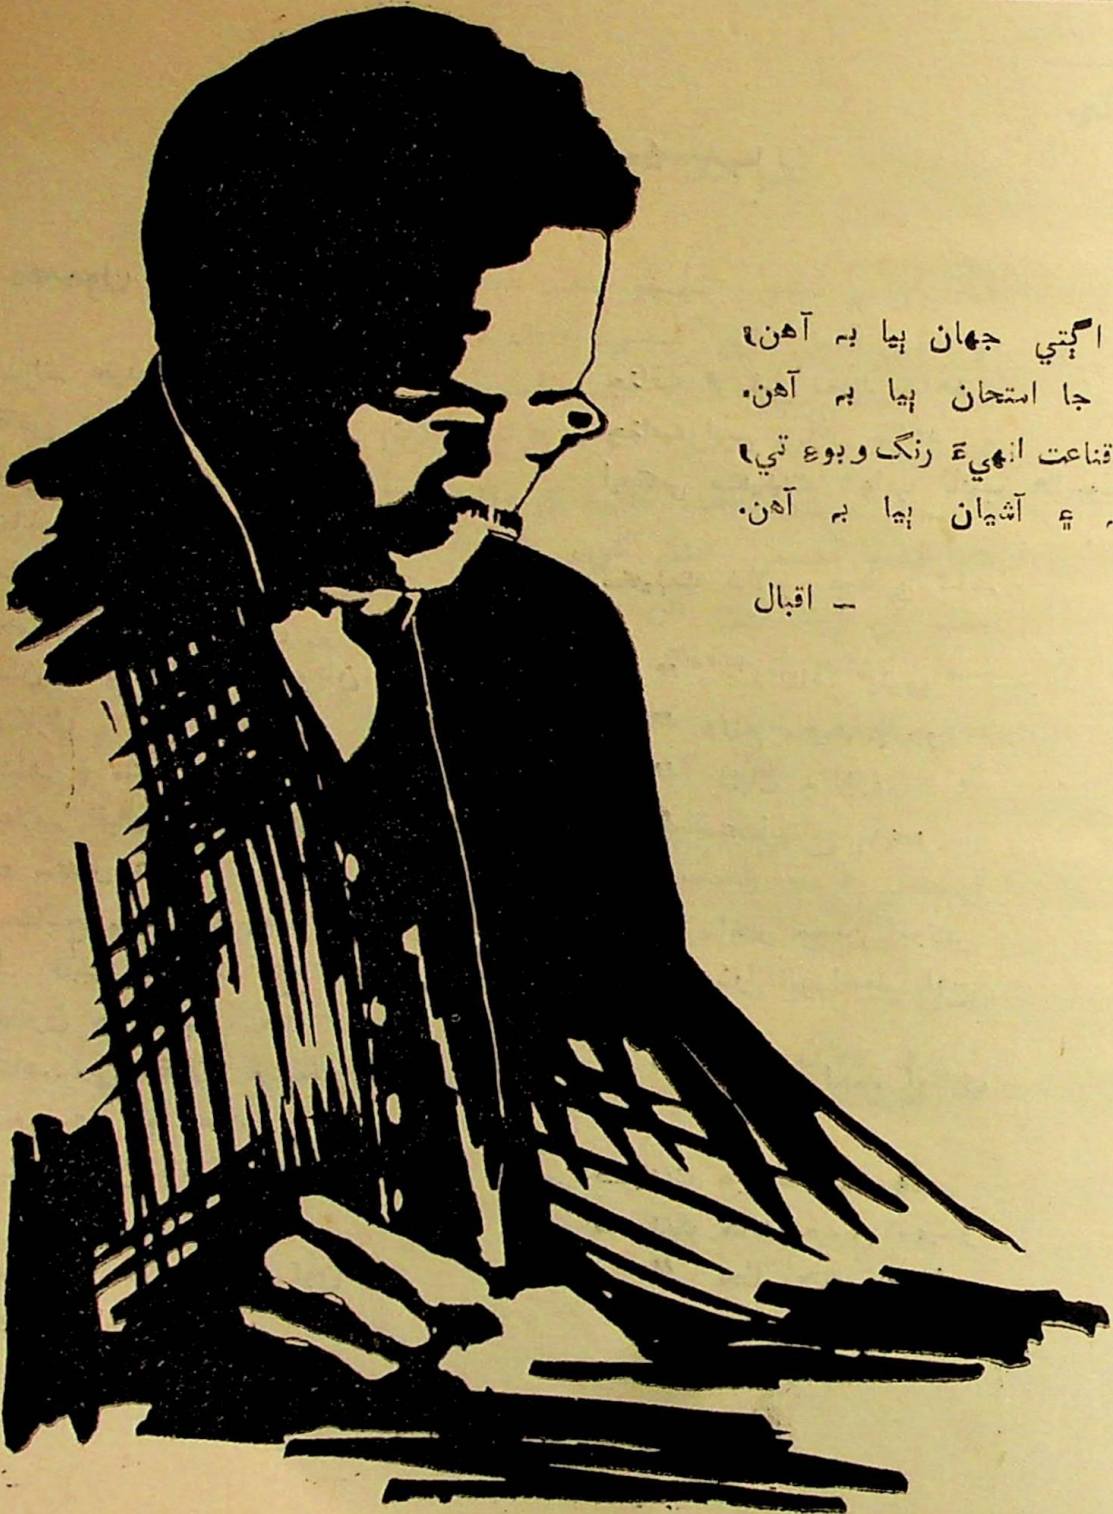 اڳتي جهان ٻيا به آهن،
جا امتحان ٻيا به آهن.
قناعت انهيءَ رنگ و بوءِ تي،
۽ آشيان ٻيا به آهن.
– اقبال